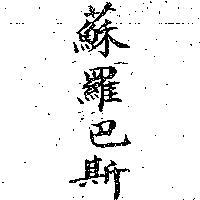 蘇羅巴斯